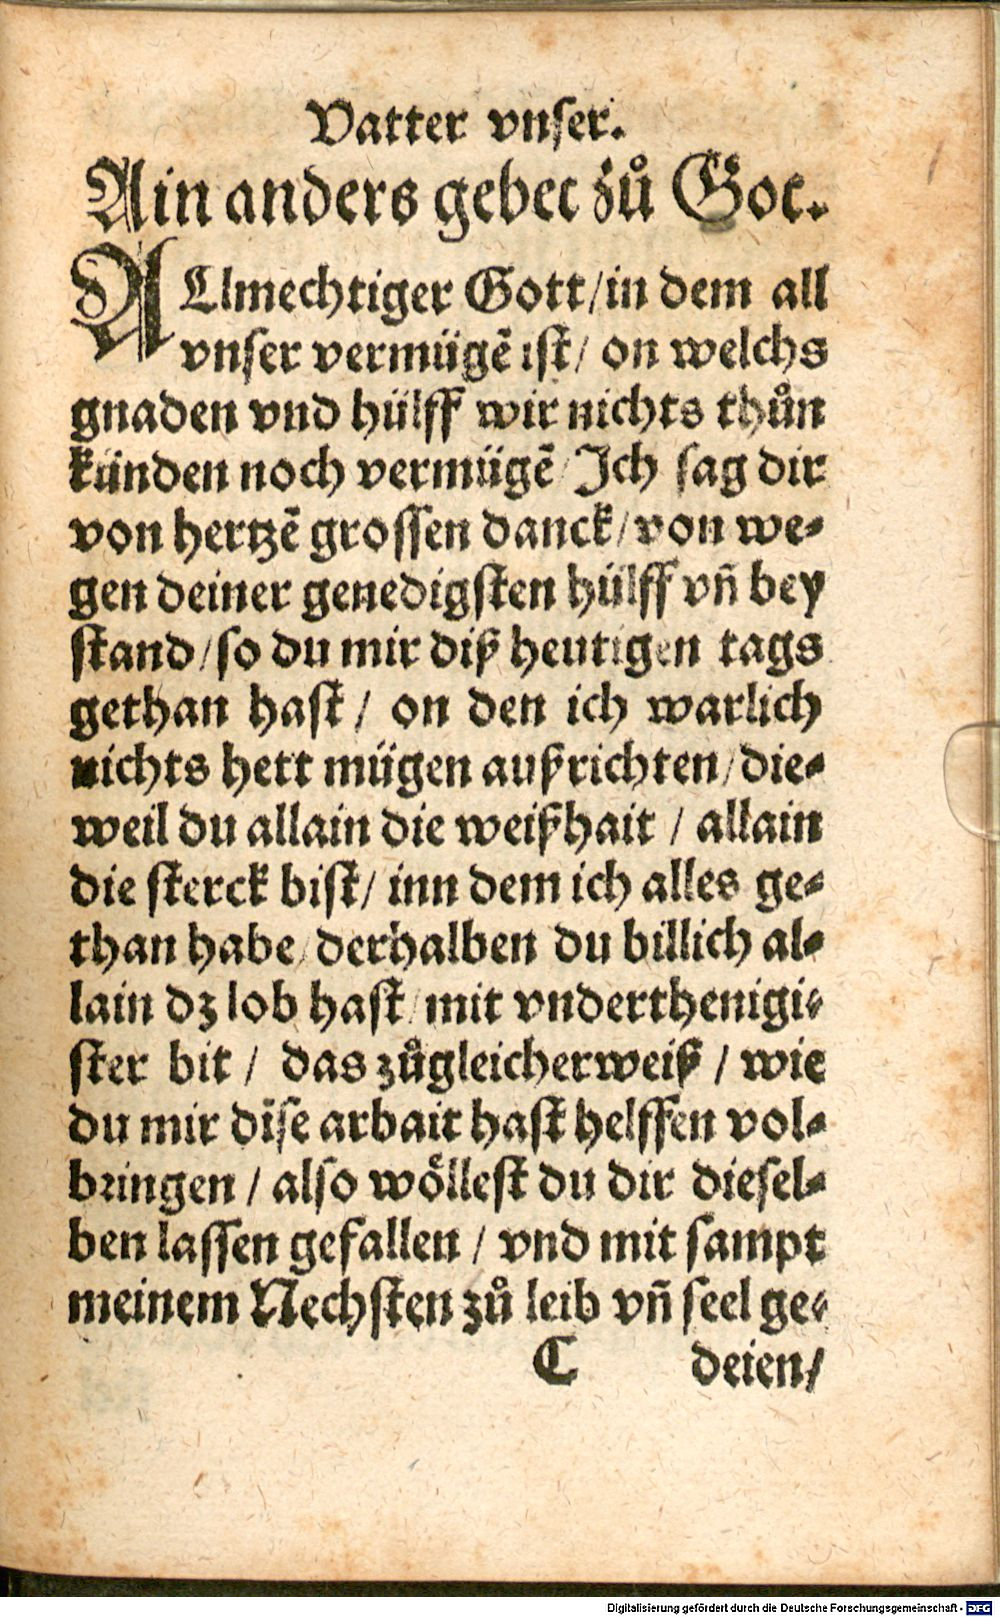 Vatter vnser.
Ain anders gebet zů Got.
ALlmechtiger Gott/in dem all
vnser vermügẽ ist/ on welchs
gnaden vnd hülff wir nichts thůn
künden noch vermügẽ/Ich sag dir
von hertzẽ grossen danck/von we⸗
gen deiner genedigsten hülff vñ bey
stand/so du mir diß heutigen tags
gethan hast/ on den ich warlich
nichts hett mügen außrichten/die⸗
weil du allain die weißhait / allain
die sterck bist/ inn dem ich alles ge⸗
than habe/derhalben du billich al⸗
lain dz lob hast/mit vnderthenigi⸗
ster bit / das zůgleicherweiß / wie
du mir dise arbait hast helffen vol⸗
bringen / also wöllest du dir diesel⸗
ben lassen gefallen / vnd mit sampt
meinem Nechsten zů leib vñ seel ge⸗
C deien/
Digitalisierung gefördert durch die Deutsche Forschungsgemeinschaft - DFG